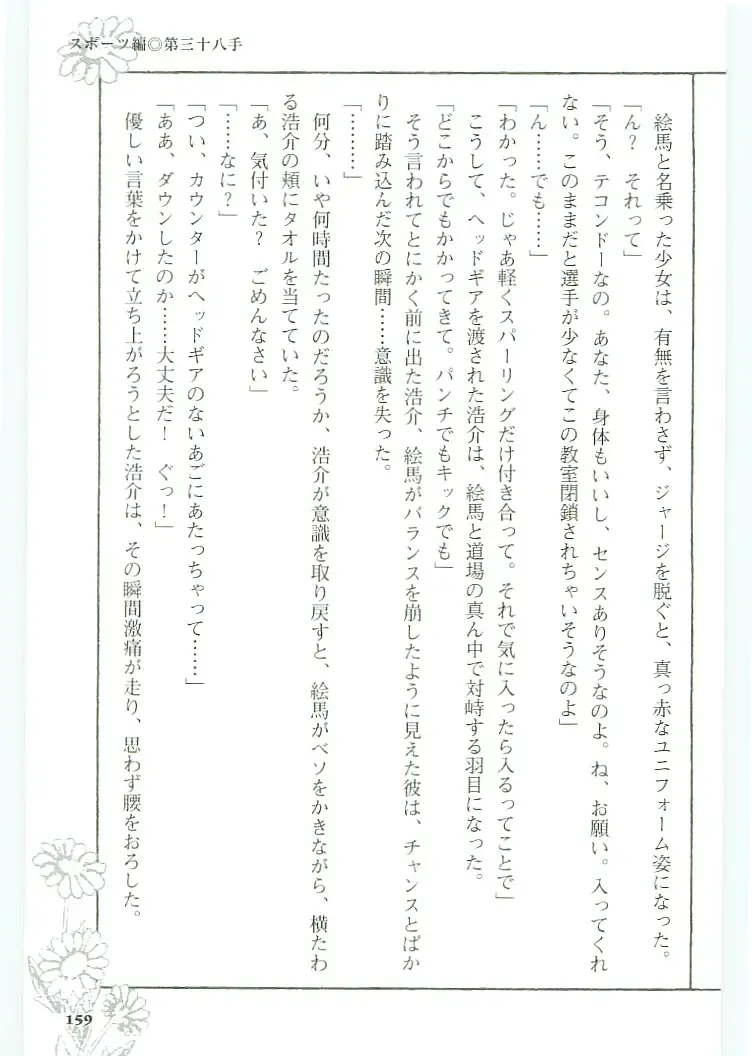 スポーツ編◎第三十八手
絵馬と名乗った少女は、有無を言わさず、ジャージを脱ぐと、真っ赤なユニフォーム姿になった。
「ん？　それって」
「そう、テコンドーなの。あなた、身体もいいし、センスありそうなのよ。ね、お願い。入ってくれ
ない。このままだと選手が少なくてこの教室閉鎖されちゃいそうなのよ」
「ん……でも……」
「わかった。じゃあ軽くスパーリングだけ付き合って。それで気に入ったら入るってことで」
こうして、ヘッドギアを渡された浩介は、絵馬と道場の真ん中で対峙する羽目になった。
「どこからでもかかってきて。パンチでもキックでも」
そう言われてとにかく前に出た浩介、絵馬がバランスを崩したように見えた彼は、チャンスとばか
りに踏み込んだ次の瞬間……意識を失った。
「………」
何分、いや何時間たったのだろうか、浩介が意識を取り戻すと、絵馬がベソをかきながら、横たわ
る浩介の頬にタオルを当てていた。
「あ、気付いた？　ごめんなさい」
「……なに？」
「つい、カウンターがヘッドギアのないあごにあたっちゃって……」
「ああ、ダウンしたのか……大丈夫だ！　ぐっ！」
優しい言葉をかけて立ち上がろうとした浩介は、その瞬間激痛が走り、思わず腰をおろした。
159